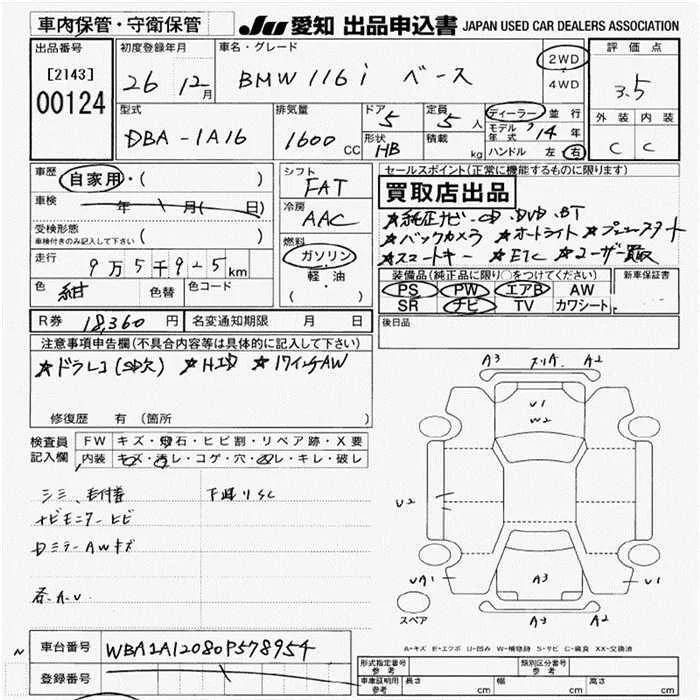 車内保管・守衛保管
JU 愛知 出品申込書 JAPAN USED CAR DEALERS ASSOCIATION
出品番号 初度登録年月 車名・グレード 評価点
[2143] 00124 26 12月 BMW 116i ベース 2WD 4WD 3.5
型式 排気量 ドア 5 定員 5人 ディーラー 並行 外装 内装
DBA-1A16 1600 CC 形状 HB 積載 kg モデル年式 '14年 C C
ハンドル 左 右
車歴 自家用・( ) シフト FAT セールスポイント(正常に機能するものに限ります)
買取店出品
車検 年 月( 日) 冷房 AAC ★純正ナビ・CD・DVD・BT
受検形態 車検付きのみ記入して下さい ( ) ★バックカメラ ★オートライト ★プッシュスタート
燃料 ガソリン・軽・油 ( ) ★スマートキー ★ETC ★ユーザー買取
走行 9万5千925km
装備品(純正品に限り○をつけてください) 新車保証書
色 紺 色替 色コード PS PW エアB AW
SR ナビ TV カワシート
R券 18,360円 名変通知期限 月 日 後日品
注意事項申告欄(不具合内容等は具体的に記入して下さい)
★ドラレコ(SD欠) ★HID ★17インチAW
修復歴 有 (箇所 )
検査員記入欄 FW キズ・飛石・ヒビ割・リペア跡・X要
内装 キズ・汚レ・コゲ・穴・凹レ・キレ・破レ
シミ、毛付着 下廻りSC
ナビモニターヒビ
DミラーAWキズ
A3 A2
U1
W2
U2
UA1 A3 U1
A3 A2
スペア
A-キズ E-エクボ U-凹み W-補修跡 S-サビ C-腐食 XX-交換済
車台番号 WBA1A12080P578954
登録番号
形式指定番号 参考 類別区分番号 参考
車庫証明用 参考 長さ cm 幅 cm 高さ cm